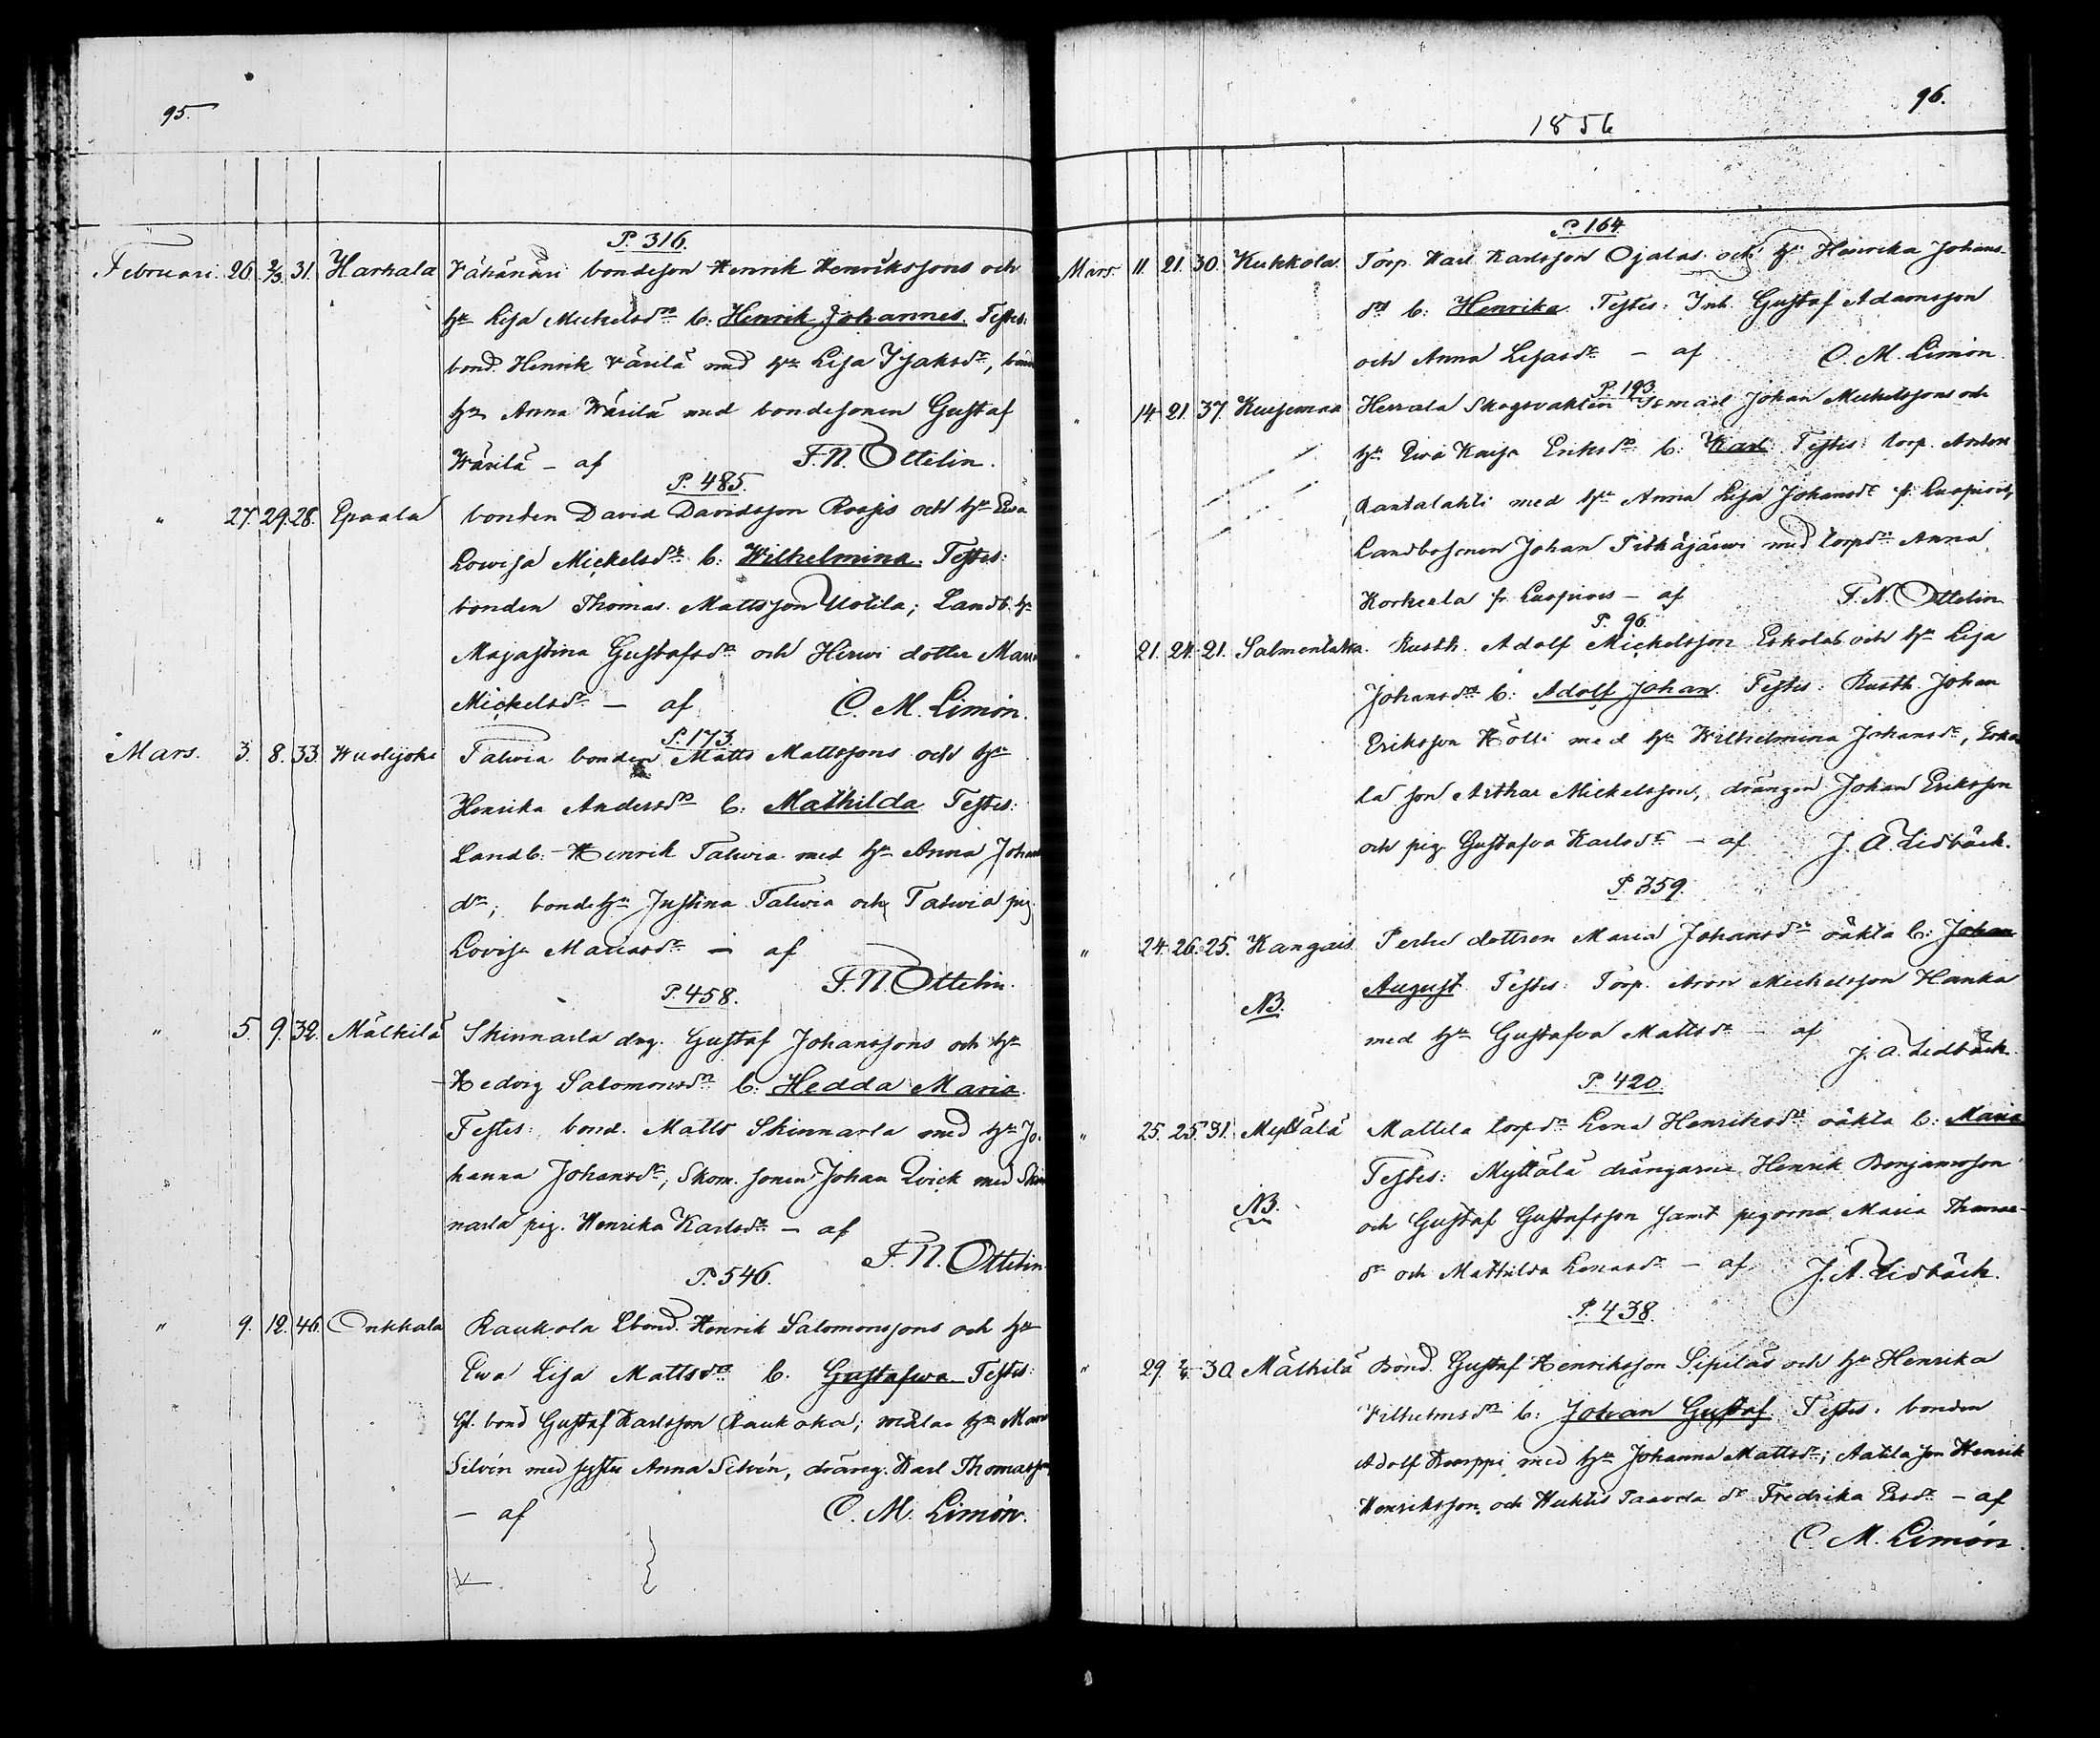 95.
P. 316.
Februari. 26. 2/3. 31. Harhala Vähänäri bondeson Henrik Henrikssons och
hu Lisa Michelsdr b: Henrik Johannes. Testes:
bond. Henrik Wärilä med hu Lisa Isaksdr, bonde
hu Anna Wärilä med bondesonen Gustaf
Wärilä – af F. N. Ottelin.
P. 485.
" 27. 29. 28. Epaala bonden David Davidsson Roopis och hu Eva
Lowisa Mickelsdr b: Wilhelmina. Testes:
bonden Thomas Mattsson Uotila; Landb. hu
Majastina Gustafsdr och Hirwi dotter Maria
Mickelsdr – af C. M. Limón.
P. 173.
Mars. 3. 8. 33. Wuolijoki Talwia bonden Matts Mattssons och hu
Henrika Andersdr b: Mathilda Testes:
Landb: Henrik Talwia med hu Anna Johans
dr; bondehu Justina Talwia och Talwia pig.
Lovisa Mariasdr – af
F. N. Ottelin.
P. 458.
" 5. 9. 32. Mälkilä Skinnarla drg. Gustaf Johanssons och hu
Hedvig Salomonsdr b: Hedda Maria.
Testes: bond. Matts Skinnarla med hu Jo-
hanna Johansdr, Skom. sonen Johan Qvick med Skin
narla pig. Henrika Karlsdr – af
F. N. Ottelin
P. 546.
" 9. 12. 46. Onkkala Raukola Lbond. Henrik Salomonssons och hu
Ewa Lisa Mattsdr b. Gustafwa Testes:
Gl. bond Gustaf Karlsson Raukola; målar hu Maria
Silvén med syster Anna Silvén, dräng. Karl Thomasson
– af C. M. Limón.
96.
1856
P. 164
Mars. 11. 21. 30. Kukkola. Torp. Karl Karlsson Ojalas och hu Henrika Johans-
dr b: Henrika. Testes: Inh. Gustaf Adamsson
och Anna Lisasdr – af C. M. Limón.
P. 193.
" 14. 21. 37. Kuisemaa Herrala Skogvaktin Ismael Johan Michelssons och
hu Ewa Kaisa Eriksdr b: Karl Testes: torp. Anton
Rantalahti med hu Anna Lisa Johansdr fr. Luopiois,
Landbosonen Johan Pitkäjärwi med torpdr Anna
Korkeela fr Luopiois – af F. N. Ottelin
P. 96.
" 21. 24. 21. Salmentaka. Rusth. Adolf Mickelsson Eskolas och hu Lisa
Johansdr b: Adolf Johan. Testes: Rusth. Johan
Eriksson Hölli med hu Wilhelmina Johansdr, Esko
la son Arthur Mickelsson, drängen Johan Eriksson
och pig. Gustafva Karlsdr – af J. A. Lidbäck.
P. 359.
" 24. 26. 25. Kangais Perhe dottren Maria Johansdr oäkta b: Johan
August. Testes: Torp. Aron Michelsson Hanka
NB.
med hu Gustafva Mattsdr – af
J. A. Lidbäck.
P. 420.
" 25. 25. 31. Myttälä Mattila torpdr Lena Henriksdr oäkta b: Maria
Testes: Myttälä drängarne Henrik Benjamsson
NB.
och Gustaf Gustafsson samt pigorna Maria Thomas-
dr och Mathilda Lenasdr – af J. A. Lidbäck.
P. 438.
" 29. 2/4 30. Mälkilä Bond. Gustaf Henriksson Sipiläs och hu Henrika
Vilhelmsdr b: Johan Gustaf Testes: bonden
Adolf Knorppi med hu Johanna Mattsdr; Aatila son Henrik
Henriksson och Huhtis Taavola dr Fredrika Ersdr – af
C. M. Limón.